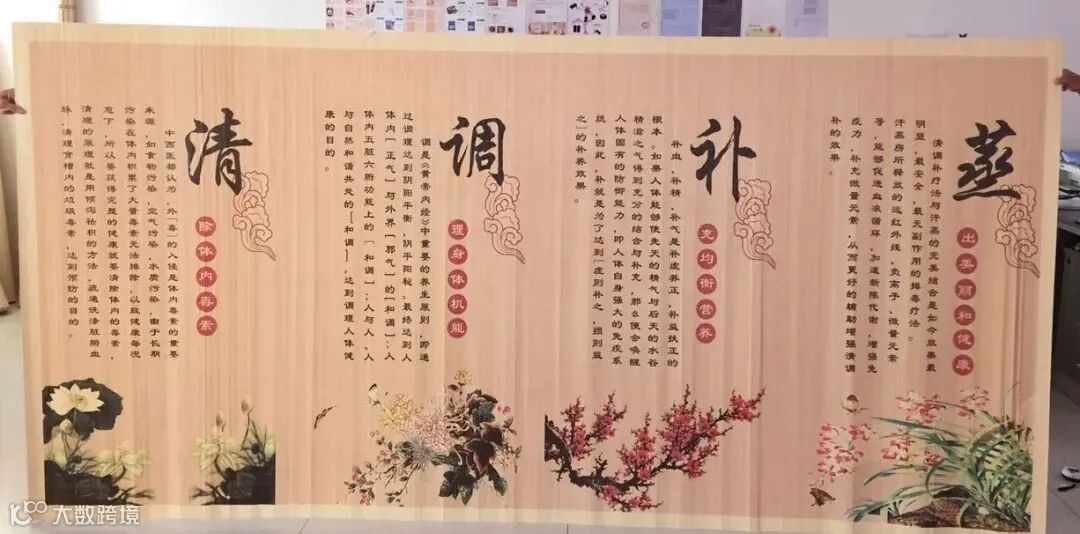 清
除体内毒素
中西医都认为，外[毒]的入侵是体内毒素的重要
来源，如食物污染，空气污染，水质污染，由于长期
污染在体内积累了大量毒素无法排除，以致健康每况
愈下，所以要获得完整的健康就要清除体内的毒素，
清理的原理就是用倾泻祛积的方法，疏通洗涤脏腑血
脉，清理食槽内的垃圾毒素，达到预防的目的。
调
理身体机能
调是《黄帝内经》中重要的养生原则，即通
过调理达到阴阳平衡，阴平阳秘。最终达到人
体内[正气]与外界[邪气]的[和调]；人
体内五脏六腑功能上的[和调]；人与人、人
与自然和谐共处的[和调]，达到调理人体健
康的目的。
补
充均衡营养
补血，补精，补气是补虚养正，补益扶正的
根本。如果人体能够使先天的精气与后天的水谷
精滋之气得到充分的结合与补充，那么便会唤醒
人体固有的防御能力，即人体自身强大的免疫系
统，因此，补就是为了达到[虚则补之，损则益
之]的补养效果。
蒸
出美丽和健康
清调补疗法与汗蒸的完美结合是如今效果最
明显，最安全，最无副作用的排毒疗法。
汗蒸房所释放的远红外线，负离子，微量元素
等，能够促进血液循环，加速新陈代谢，增强免
疫力，补充微量元素，从而更好的辅助增强清调
补的效果。
大数跨境